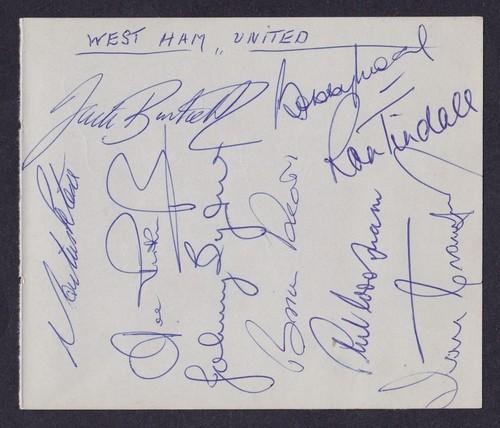 WEST HAM UNITED
Bobby Moore
Jack Burkett
Ron Tindall
Martin Peters
Joe Kirkup
Johnny Sydenham
Brian Dear
Phil Woosnam